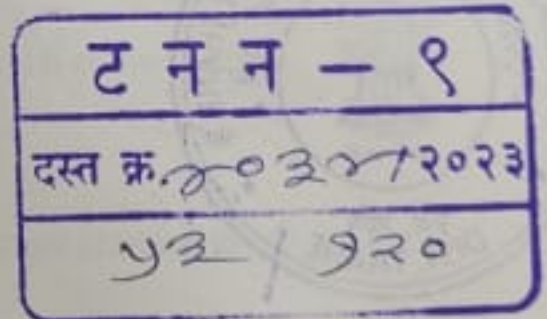 ट न न - ९
दस्त क्र. ४०३४/२०२३
५३ / १२०